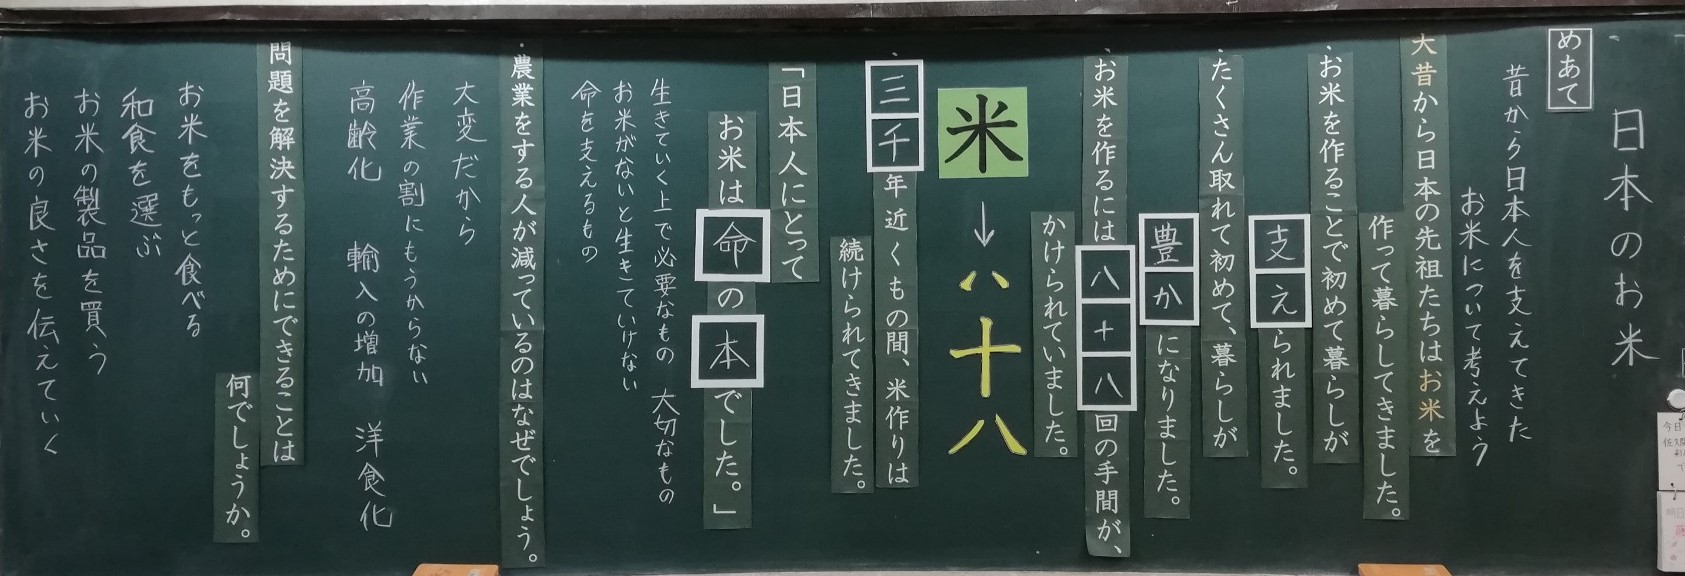 日本のお米
めあて
昔から日本人を支えてきた
お米について考えよう
大昔から日本の先祖たちはお米を
作って暮らしてきました。
・お米を作ることで初めて暮らしが
支えられました。
・たくさん取れて初めて、暮らしが
豊かになりました。
・お米を作るには八十八回の手間が、
かけられていました。
米→八十八
・三千年近くもの間、米作りは
続けられてきました。
「日本人にとって
お米は命の本でした。」
生きていく上で必要なもの 大切なもの
お米がないと生きていけない
命を支えるもの
・農業をする人が減っているのはなぜでしょう。
大変だから
作業の割にもうからない
高齢化 輸入の増加 洋食化
問題を解決するためにできることは
何でしょうか。
お米をもっと食べる
和食を選ぶ
お米の製品を買う
お米の良さを伝えていく
今日
明日